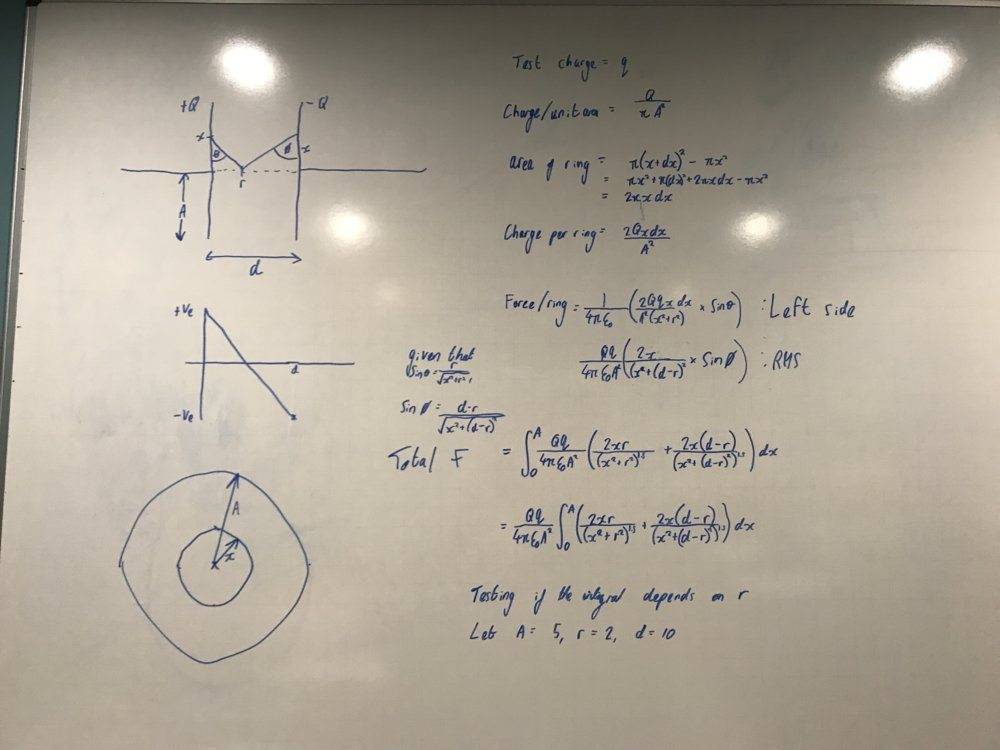 +Q
-Q
x
θ
ø
x
r
A
d
+ve
d
-ve
A
x
Test charge = q
Charge/unit area = Q/πA²
area of ring = π(x+dx)² - πx²
= πx² + π(dx)² + 2πxdx - πx²
= 2πxdx
Charge per ring = 2Qxdx/A²
Force/ring = 1/4πε₀ (2Qqxdx/A²(x²+r²) × Sinθ) : Left side
Qq/4πε₀A² (2x/(x²+(d-r)² × Sin ø) : RHS
given that
sinθ = r/√x²+r²
Sin ø = d-r/√x²+(d-r)²
Total F = ∫₀ᴬ Qq/4πε₀A² (2xr/(x²+r²)^1.5 + 2x(d-r)/(x²+(d-r)²)^1.5) dx
= Qq/4πε₀A² ∫₀ᴬ (2xr/(x²+r²)^1.5 + 2x(d-r)/(x²+(d-r)²)^1.5) dx
Testing if the integral depends on r
Let A = 5, r = 2, d = 10